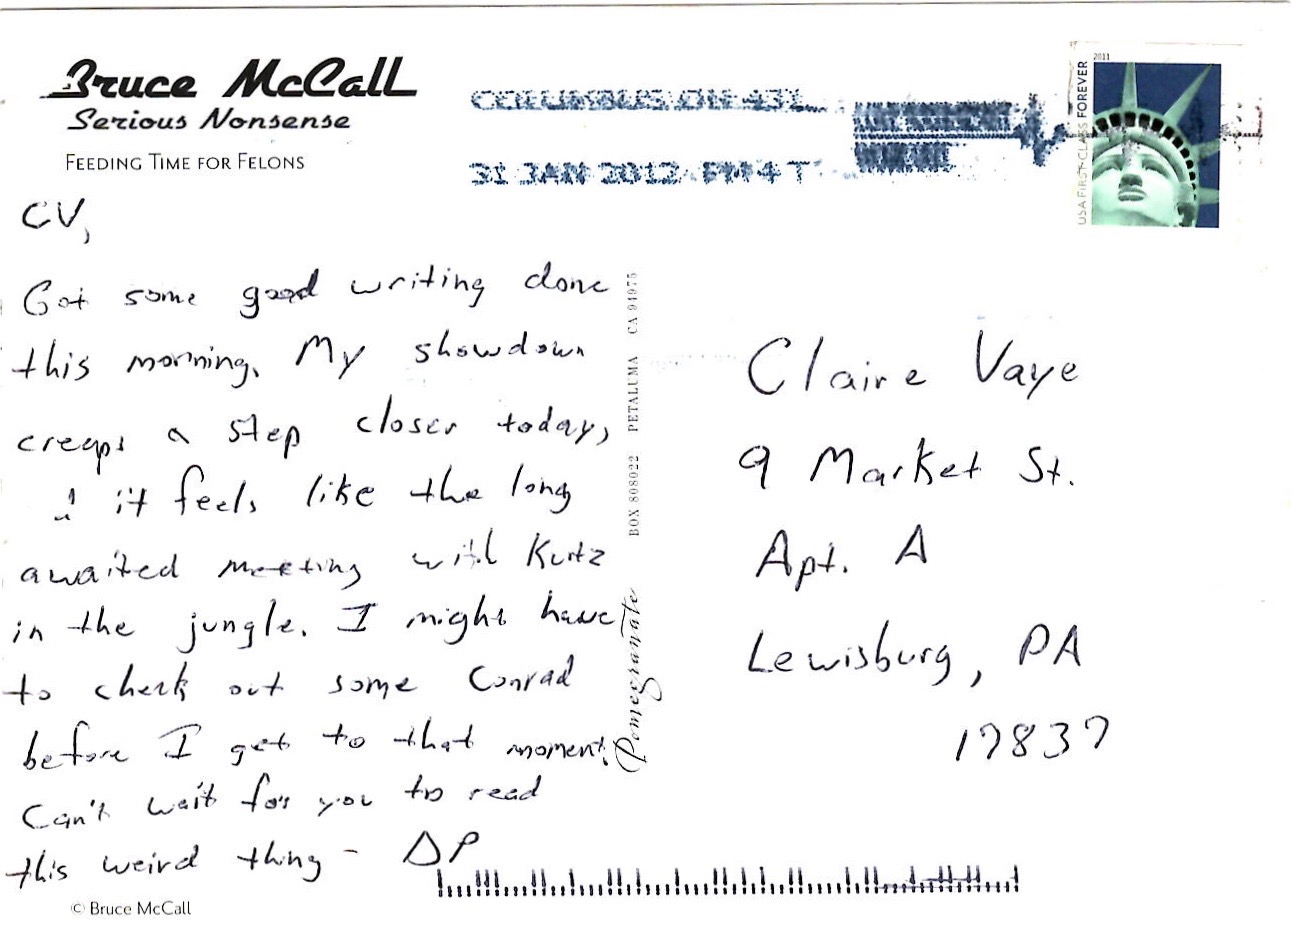 Bruce McCall
Serious Nonsense
FEEDING TIME FOR FELONS
COLUMBUS OH 431
31 JAN 2012 PM 4 T
2011
USA FIRST-CLASS FOREVER
CV,
Got some good writing done
this morning. My showdown
creeps a step closer today,
& it feels like the long
awaited meeting with Kurtz
in the jungle. I might have
to check out some Conrad
before I get to that moment.
Can't wait for you to read
this weird thing - DP
© Bruce McCall
Pomegranate BOX 808022 PETALUMA CA 94975
Claire Vaye
9 Market St.
Apt. A
Lewisburg, PA
17837